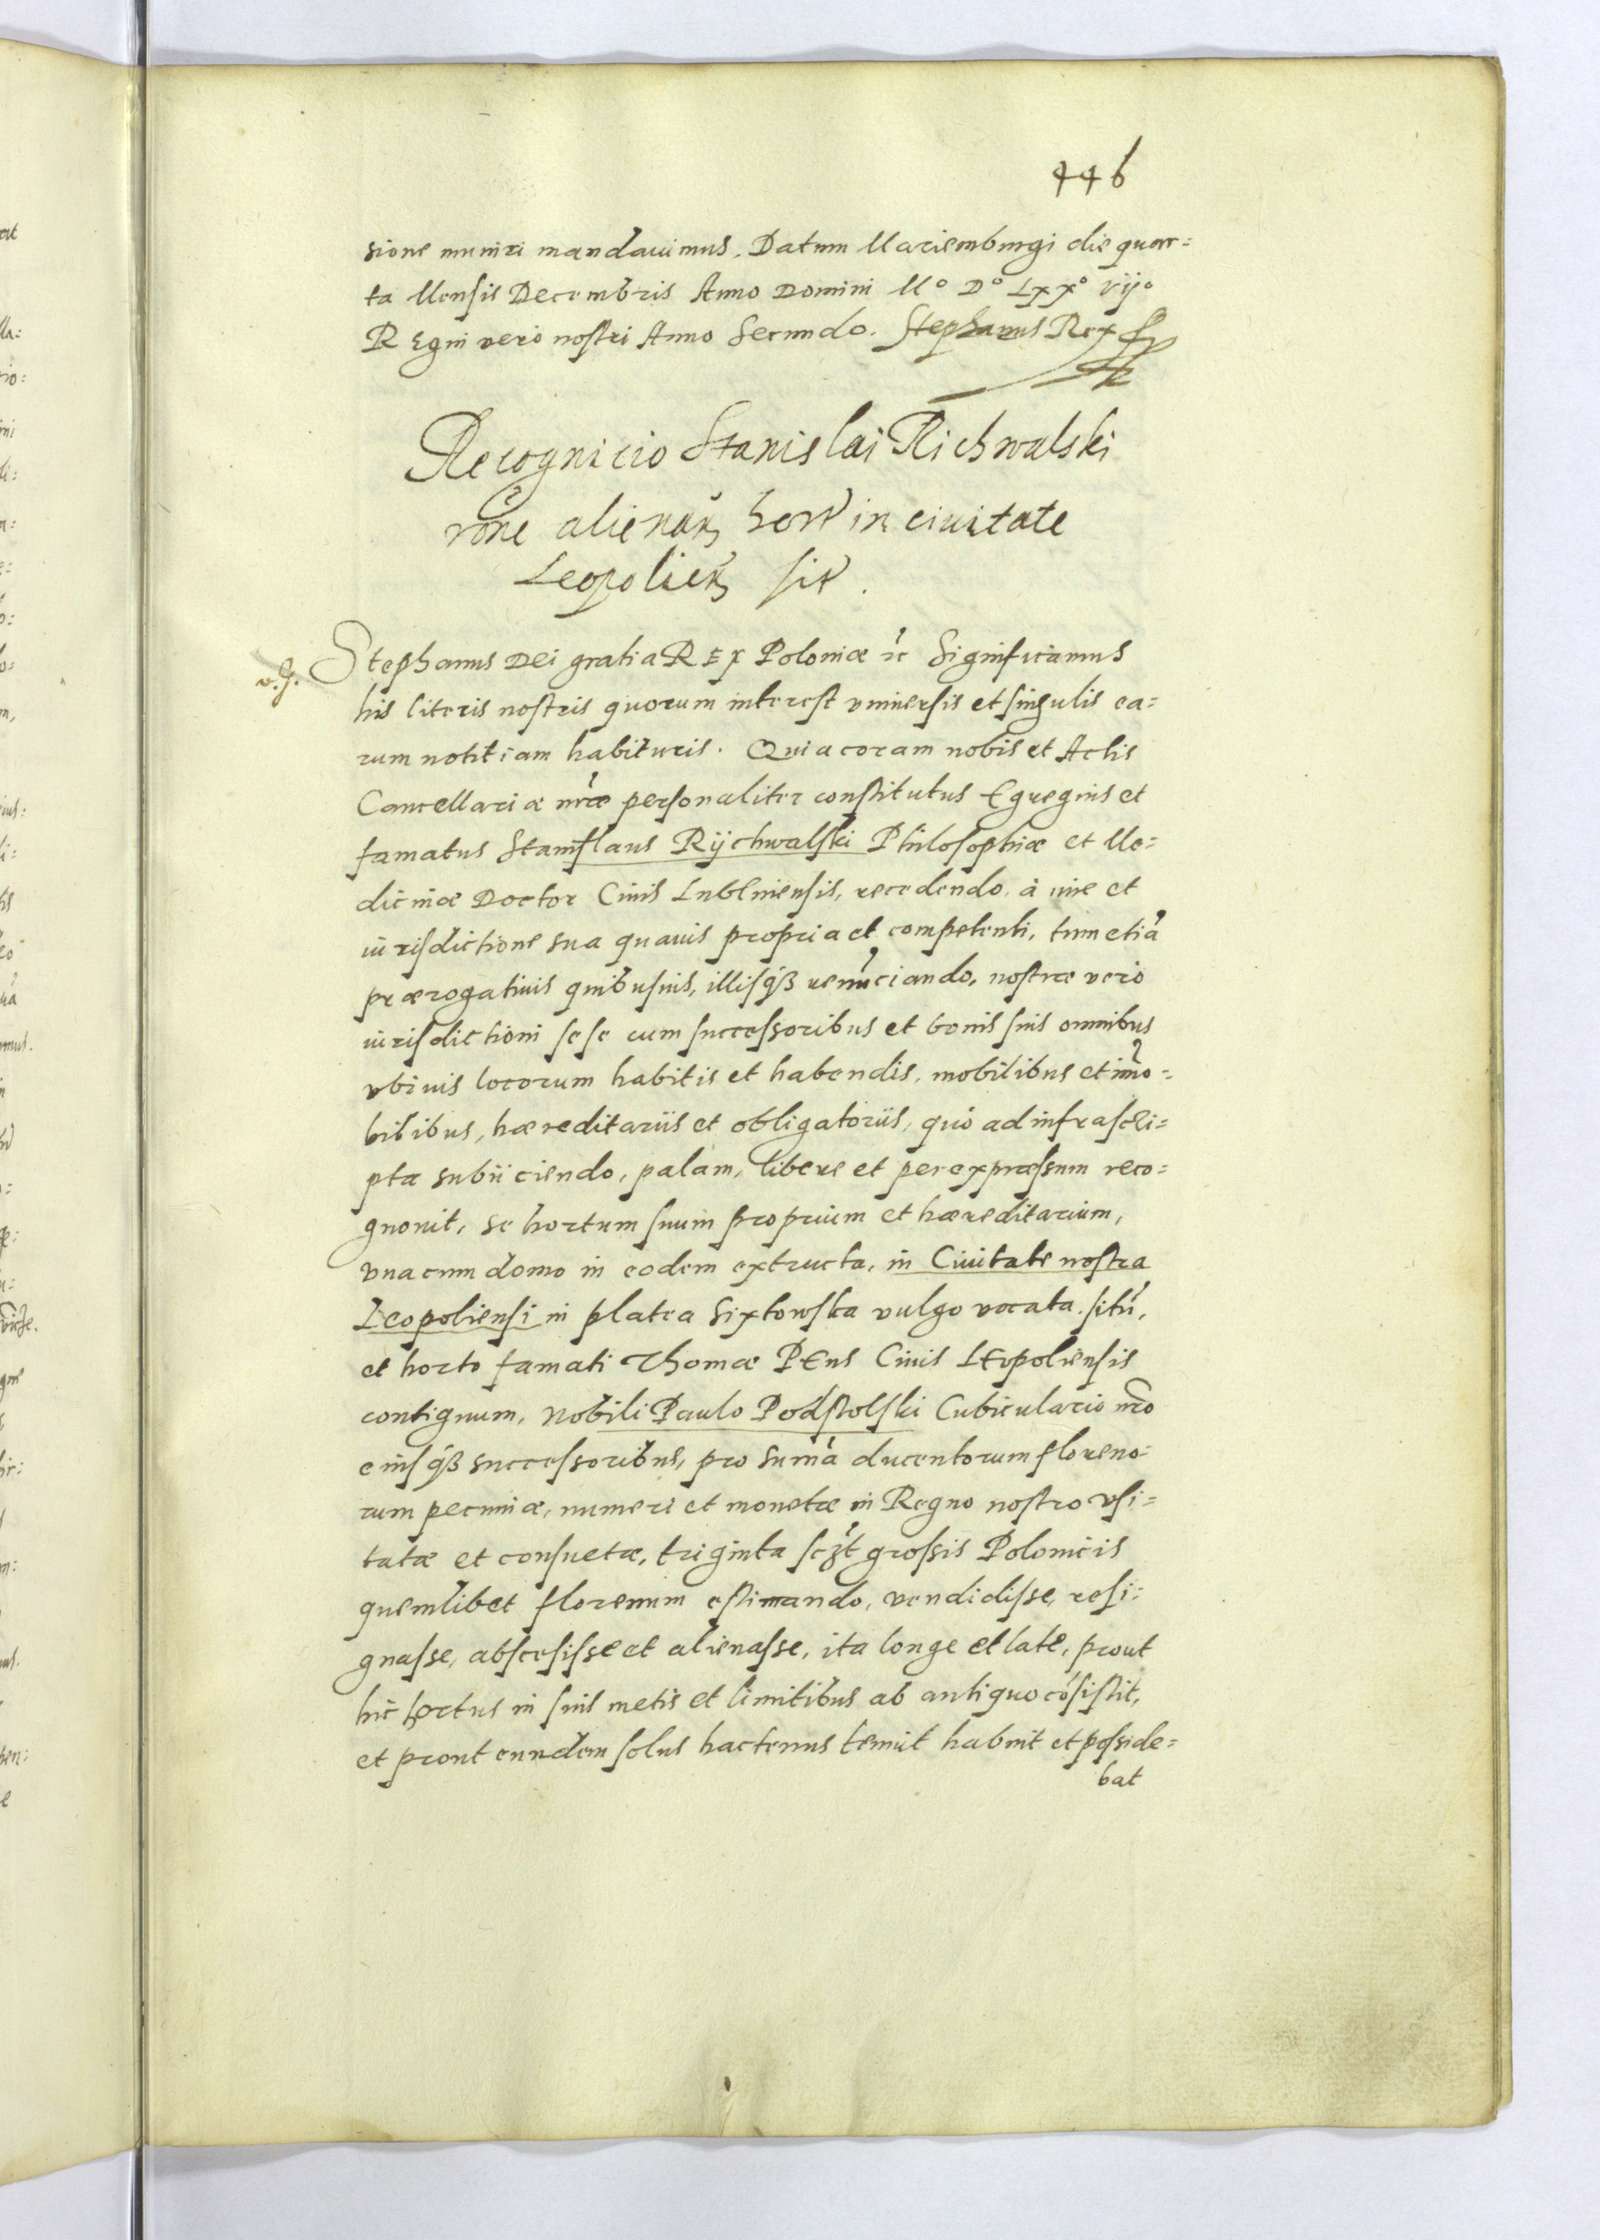 446
sione muniri mandauimus. Datum Mariemburgi die quar=
ta Mensis Decembris Anno Domini M° D° Lxx° vij°
REgni vero nostri Anno Secundo. Stephanus Rex
Recognicio Stanislai Richwalski
rōne alienan̄ hort in ciuitate
Leopolien̄ sit.
v.g.
Stephanus Dei gratia REx Poloniæ ꝛc Significamus
his literis nostris quorum interest vniuersis et singulis ea=
rum notitiam habituris. Quia coram nobis et Actis
Cancellariæ nr̄æ personaliter constitutus Egregius et
famatus Stanislaus Rijchwalski Philosophiæ et Me=
dicinæ Doctor Ciuis Lubliniensis, recedendo à iure et
iurisdictione sua quauis propria et competenti, tum etiā
prærogatiuis quibusuis, illisqꝫ renūciando, nostræ vero
iurisdictioni sese cum successoribus et bonis suis omnibus
vbiuis locorum habitis et habendis, mobilibus et im̄o=
bilibus, hæreditariis et obligatoriis, quò ad infrascri=
pta subiiciendo, palam, libere et per expræssum reco=
gnouit, se hortum suum proprium et hæreditarium,
vna cum domo in eodem extructa, in Ciuitate nostra
Leopoliensi in platea Sixtowska vulgo vocata sitū,
et horto famati Thomæ PEns Ciuis LEopoliensis
contiguum, Nobili Paulo Podstolski Cubiculario nr̄o
eiusqꝫ successoribus, pro sum̄a ducentorum floreno=
rum pecuniæ, numeri et monetæ in Regno nostro vsi=
tatæ et consuetæ, triginta scꝫt grossis Polonicis
quemlibet florenum estimando, vendidisse, resi=
gnasse, abscesisse et alienasse, ita longe et late, prout
hic hortus in suis metis et limitibus ab antiquo cōsistit,
et prout eundem solus hactenus tenuit habuit et posside=
bat